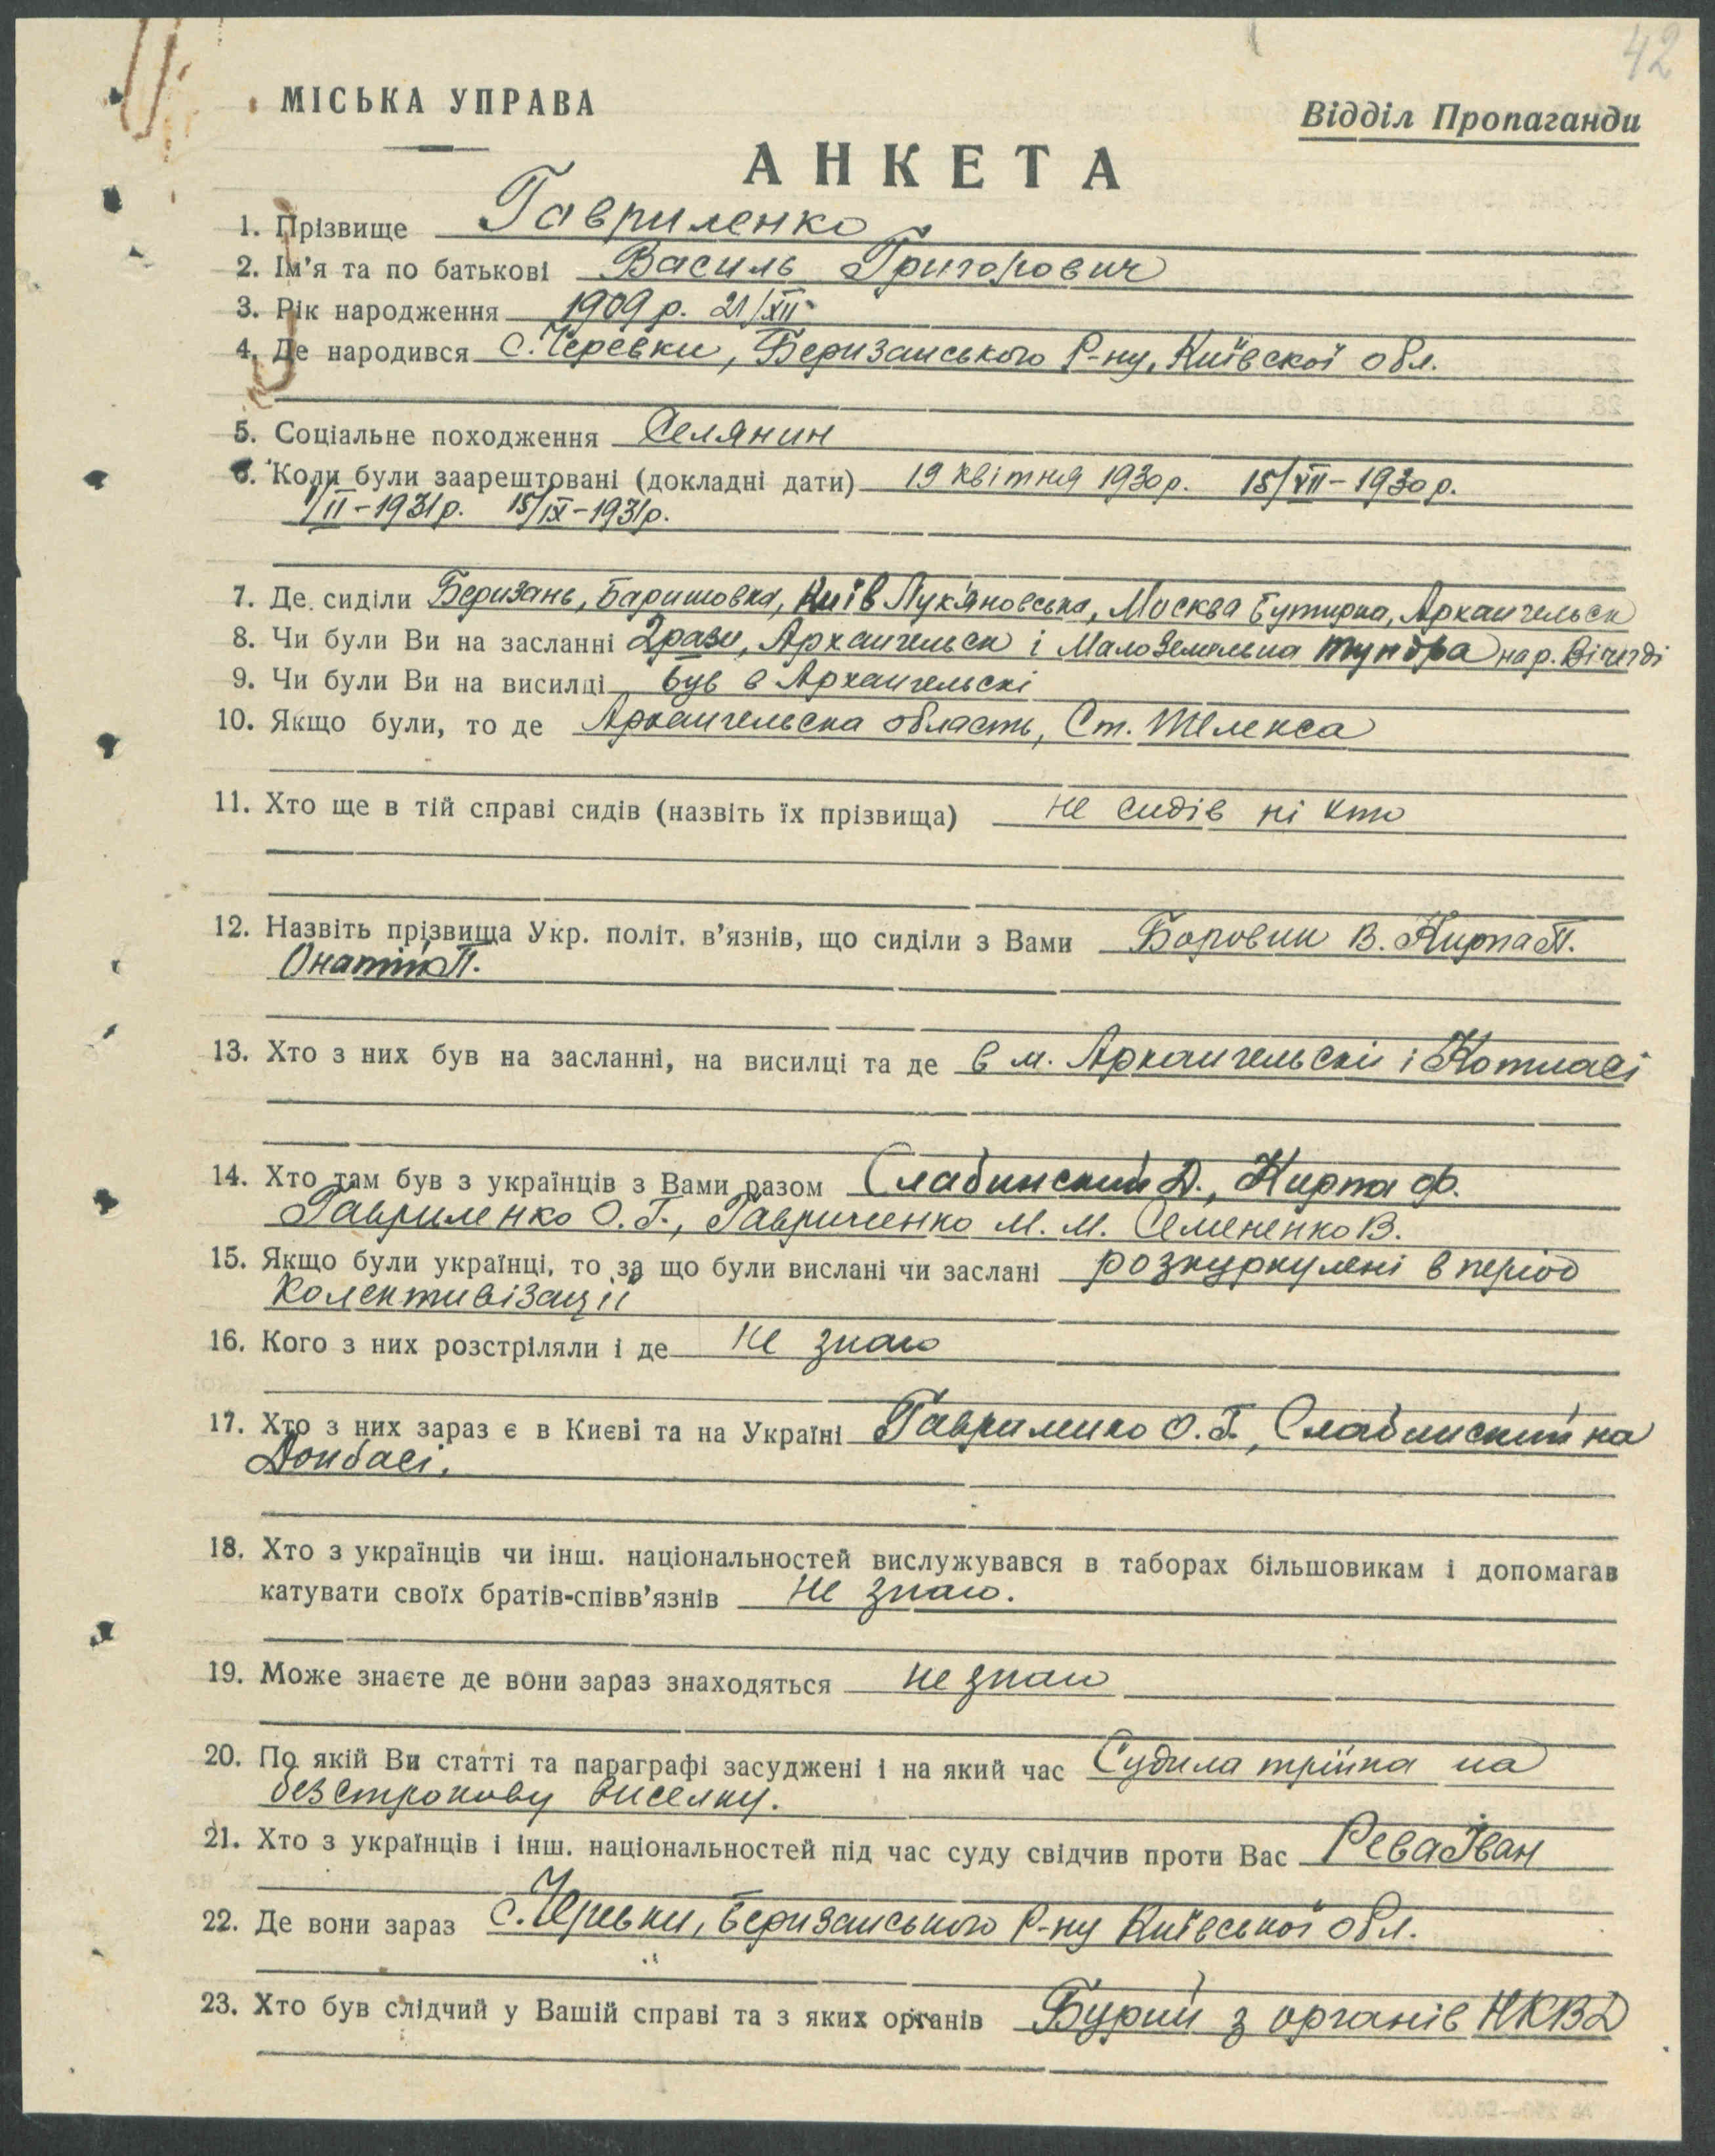 42
МІСЬКА УПРАВА
Відділ Пропаганди
АНКЕТА
1. Прізвище Гавриленко
2. Ім'я та по батькові Василь Григорович
3. Рік народження 1909 р. 21/XII
4. Де народився с. Черевки, Беризанського Р-ну, Київскої обл.
5. Соціальне походження Селянин
6. Коли були заарештовані (докладні дати) 19 квітня 1930 р. 15/VII-1930 р.
1/II-1931 р. 15/IX-1931 р.
7. Де сиділи Беризань, Баришовка, Київ Лук'яновська, Москва Бутирка, Архангельск
8. Чи були Ви на засланні 2 рази, Архангельск і Малоземельна тундра на р. Вічегді
9. Чи були Ви на висилці був в Архангельскі
10. Якщо були, то де Архангельска область, Ст. Шелекса
11. Хто ще в тій справі сидів (назвіть їх прізвища) не сидів ні кто
12. Назвіть прізвища Укр. політ. в'язнів, що сиділи з Вами Боровик В. Кирпа П.
П.
13. Хто з них був на засланні, на висилці та де в м. Архангельскі і Котласі
14. Хто там був з українців з Вами разом Слабинский Д., Кирпа Ф.
Гавриленко О. Г., Гавриченко М. М. Семененко В.
15. Якщо були українці, то за що були вислані чи заслані розкуркулені в період
Колективізації
16. Кого з них розстріляли і де не знаю
17. Хто з них зараз є в Києві та на Україні Гавриленко О. Г., Слабинский на
Донбасі.
18. Хто з українців чи інш. національностей вислужувався в таборах більшовикам і допомагав
катувати своїх братів-співв'язнів не знаю.
19. Може знаєте де вони зараз знаходяться не знаю
20. По якій Ви статті та параграфі засуджені і на який час Судила трійка на
безстрокову виселку.
21. Хто з українців і інш. національностей під час суду свідчив проти Вас Рева Іван
22. Де вони зараз с. Черевки, Беризанського Р-ну Київської обл.
23. Хто був слідчий у Вашій справі та з яких органів Бурий з органів НКВД